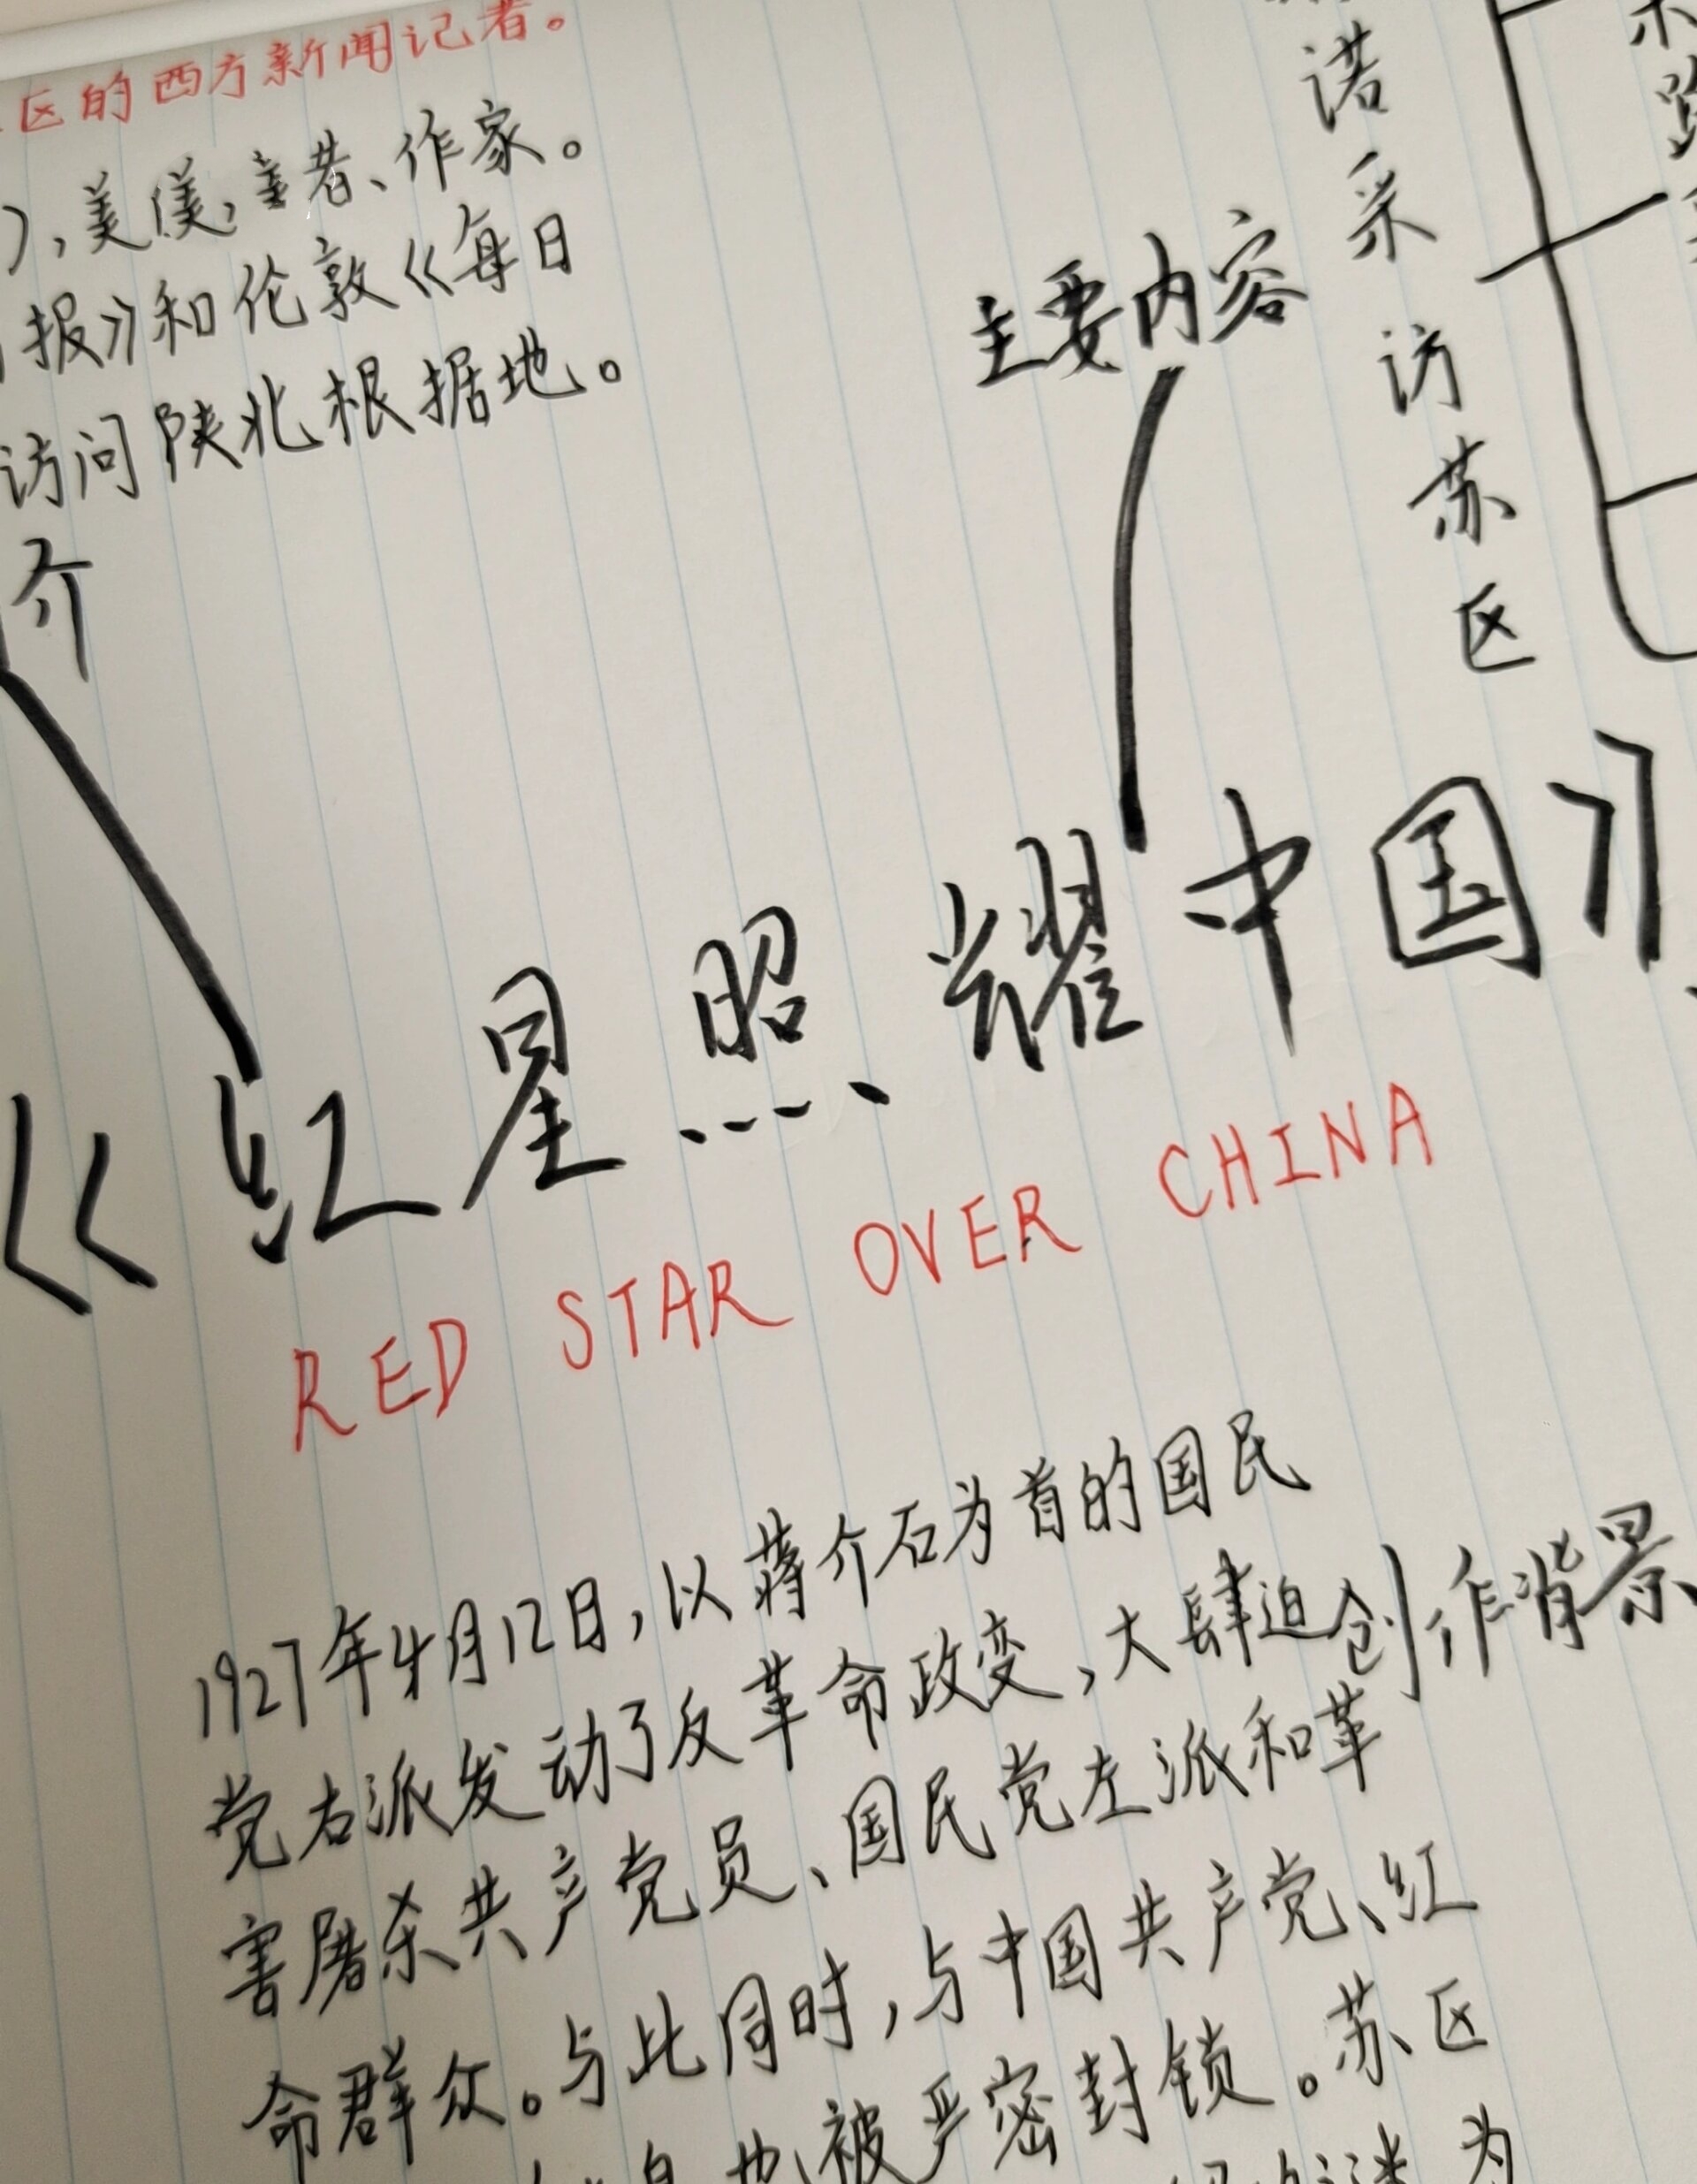 区的西方新闻记者。
作家。
报》和伦敦《每日
访问陕北根据地。
介
主要内容
诺采访苏区
《红星照耀中国》
RED STAR OVER CHINA
创作背景
1927年4月12日,以蒋介石为首的国民
党右派发动了反革命政变,大肆迫
害屠杀共产党员、国民党左派和革
命群众。与此同时,与中国共产党、红
被严密封锁。苏区
为